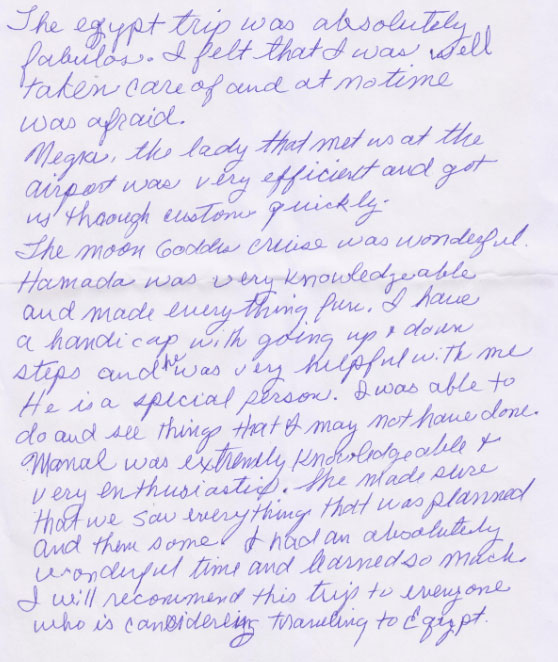 The egypt trip was absolutely
fabulos. I felt that I was well
taken care of and at no time
was afraid.
Negra, the lady that met us at the
airport was very efficient and got
us through custom quickly.
The moon Goddss cruise was wonderful.
Hamada was very knowledgeable
and made everything fun. I have
a handicap with going up & down
steps and he was very helpful with me
He is a special person. I was able to
do and see things that I may not have done.
Manal was extremly knowledgeable &
very enthusiastic. She made sure
that we saw everything that was planned
and then some. I had an absolutely
wonderful time and learned so much.
I will recommend this trip to everyone
who is considereing traveling to Egypt.